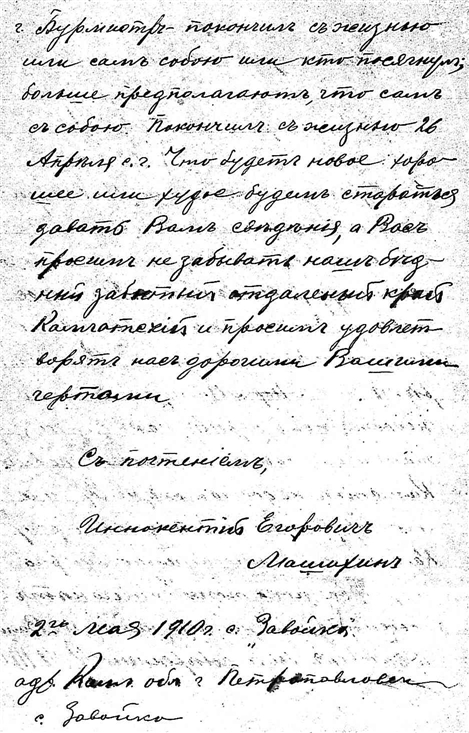 г. Бурмиотръ покончилъ съ жизнью
или самъ собою или кто посягнулъ;
больше предполагаютъ, что самъ
съ собою. Покончилъ съ жизнью 26
Апрѣля с. г. Что будетъ новое хоро-
шее или худое будемъ стараться
давать Вамъ свѣдѣнія, а Васъ
просимъ не забывать нашъ бѣд-
ный забытый отдаленый край
Камчатскій и просимъ удовлет-
ворять насъ дорогими Вашими
чертами
Съ почтеніемъ,
Иннокентій Егоровичъ
Машихинъ
2го мая 1910 г. с. "Завойко"
адр. Камч. обл. г. Петропавловск
с. Завойко